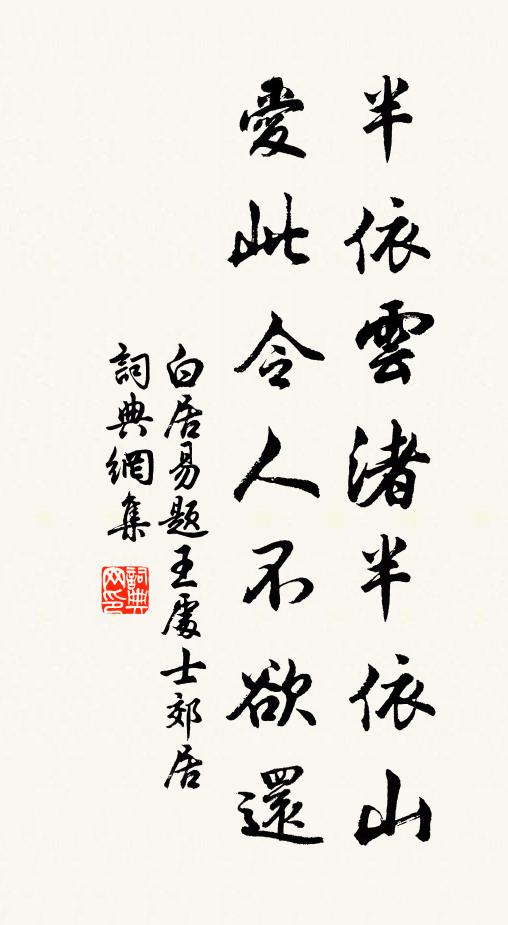 半依雲渚半依山
愛此令人不欲還
白居易題王處士郊居
詞典網集
詞典網印